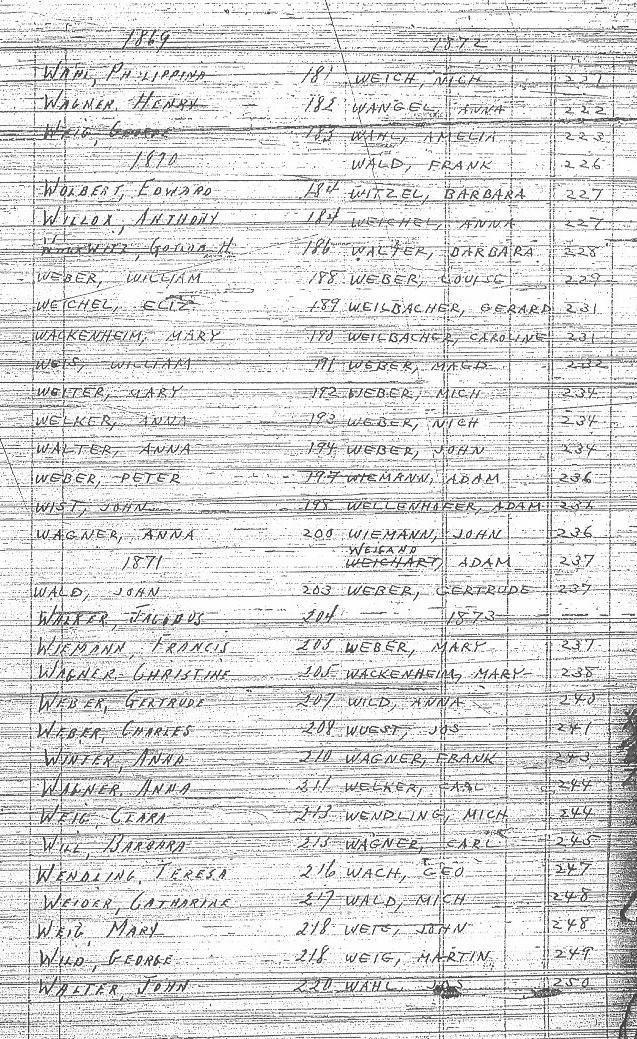 1869
WAHL, PHILIPPINA 181
WAGNER, HENRY 182
WEIG, GEORGE 183
1870
WOLBERT, EDWARD 184
WILLOX, ANTHONY 184
GOTLOB H. 186
WEBER, WILLIAM 188
WEICHEL, ELIZ 189
WACKENHEIM, MARY 190
WEIS, WILLIAM 191
WEITER, MARY 192
WELKER, ANNA 193
WALTER, ANNA 194
WEBER, PETER 197
WIST, JOHN 198
WAGNER, ANNA 200
1871
WALD, JOHN 203
WALKER, JACOBUS 204
WIEMANN, FRANCIS 205
WAGNER CHRISTINE 205
WEBER, GERTRUDE 207
WEBER, CHARLES 208
WINTER, ANNA 210
WAGNER, ANNA 211
WEIG, CLARA 213
WILL, BARBARA 215
WENDLING, TERESA 216
WEIDER, CATHARINE 217
WEIG, MARY 218
WILD, GEORGE 218
WALTER, JOHN 220
1872
WEICH, NICH 221
WANGEL, ANNA 222
WAHL, AMELIA 223
WALD, FRANK 226
WITZEL, BARBARA 227
WEICHEL, ANNA 227
WALTER, BARBARA 228
WEBER, LOUISE 229
WEILBACHER, GERARD 231
WEILBACHER, CAROLINE 231
WEBER, MAGD 232
WEBER, MICH 234
WEBER, NICH 234
WEBER, JOHN 234
WIEMANN, ADAM 236
WELLENHOFER, ADAM 236
WIEMANN, JOHN 236
WEIGAND
WEICHART, ADAM 237
WEBER, GERTRUDE 237
1873
WEBER, MARY 237
WACKENHEIM, MARY 238
WILD, ANNA 240
WUEST, JOS 241
WAGNER, FRANK 243
WELKER, CARL 244
WENDLING, MICH 244
WAGNER, CARL 245
WACH, GEO 247
WALD, MICH 248
WEIG, JOHN 248
WEIG, MARTIN 249
WAHL, JOS 250